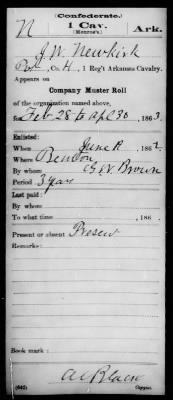 (Confederate.)
N 1 Cav. Ark.
(Monroe's)
J W Newkirk
Co. H, 1 Reg't Arkansas Cavalry.
Appears on
Company Muster Roll
of the organization named above,
Feb 28 to Apl 30, 1863.
Enlisted:
When June 1862.
Where Benton
By whom Brown
Period 3 years
Last paid:
By whom
To what time , 186 .
Present or absent Present
Remarks:
Book mark:
(642) Copyist.